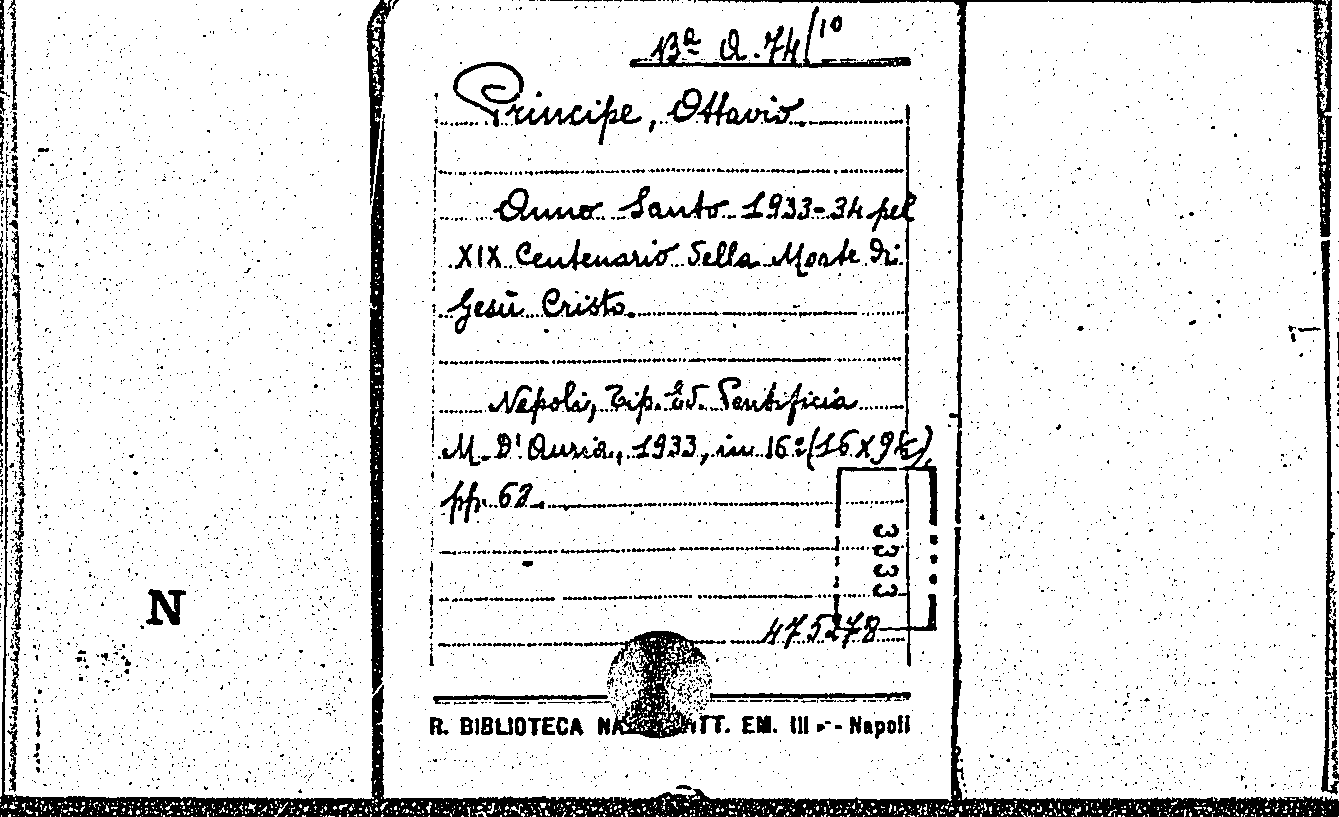 Bª Q. 74/10
Principe, Ottavio.
Anno Santo 1933-34 pel
XIX Centenario della Morte di
Gesù Cristo.
Napoli, Tip. Ed. Pontificia
M. D'Auria, 1933, in 16º (16 x 9½),
pp. 62.
3333
475278
N
R. BIBLIOTECA NA ITT. EM. III - Napoli